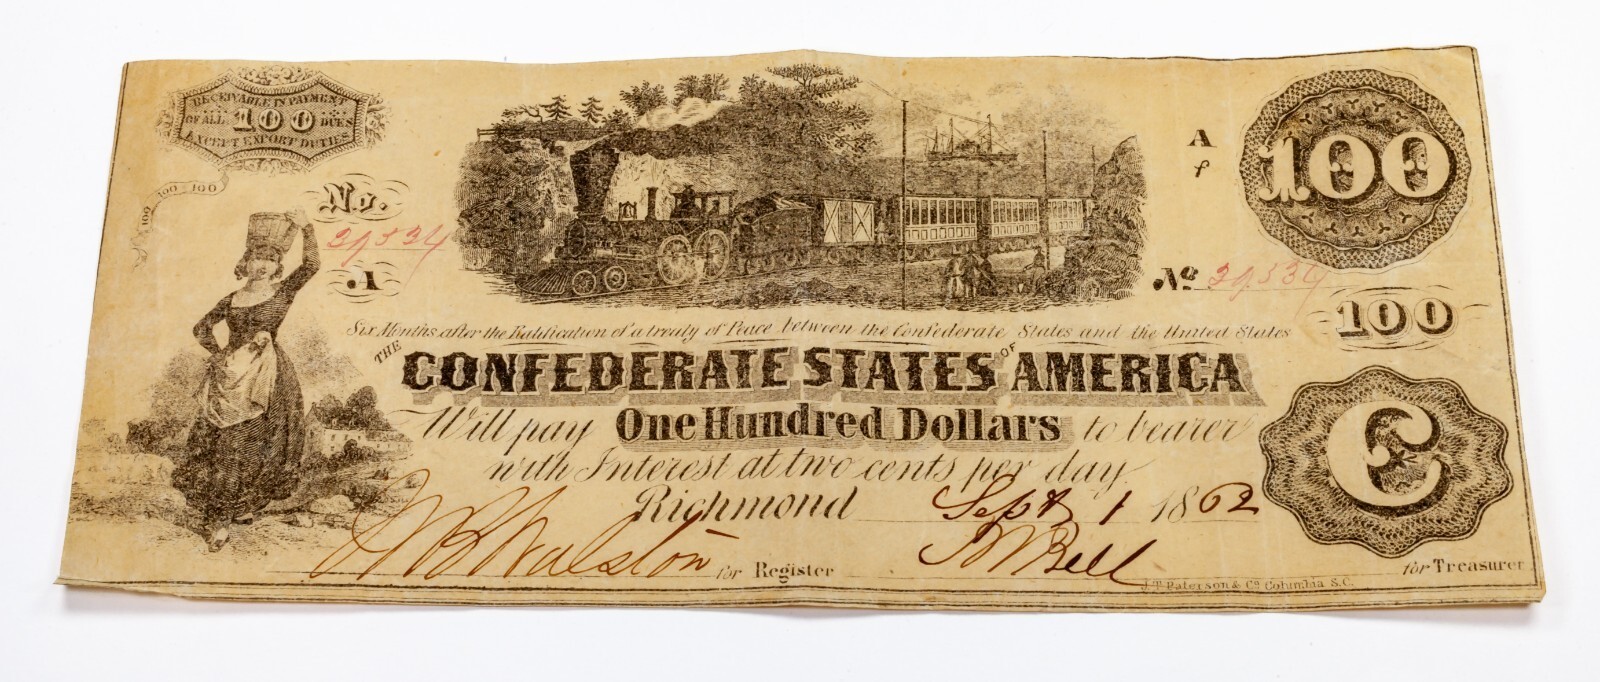 RECEIVABLE IN PAYMENT
OF ALL 100 DUES
EXCEPT EXPORT DUTIES
100 100 100
No.
A
A
f
100
No.
100
Six Months after the Ratification of a treaty of Peace between the Confederate States and the United States
THE CONFEDERATE STATES OF AMERICA
Will pay One Hundred Dollars to bearer
with Interest at two cents per day.
Richmond Sept 1 1862
C
for Register
Bell
for Treasurer
J.T. Paterson & Co. Columbia S.C.